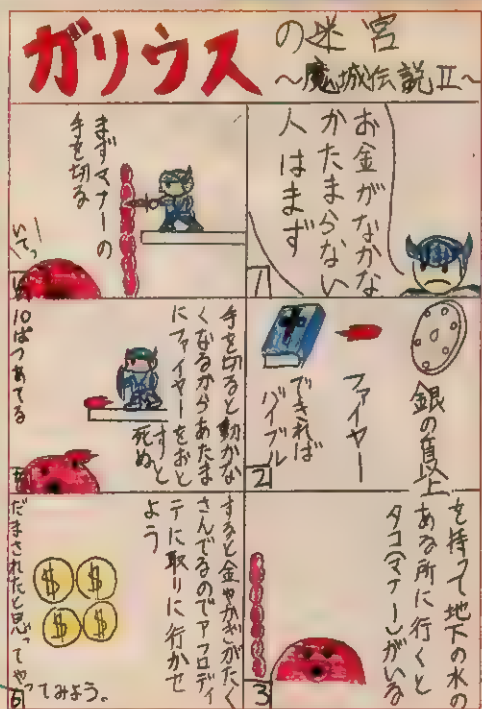 ガリウスの迷宮
〜魔城伝説II〜
お金がなかな
かたまらない
人はまず
1
銀の盾以上
ファイヤー
できれば
バイブル
2
を持って地下の水の
ある所に行くと
タコ(マナー)がいる
3
まずマナーの
手を切る
いてっ
手を切ると動かな
くなるからあたま
にファイヤーをおと
すと
死ぬ
10ぱつあてる
すると金やかぎがたく
さんでるのでアフロディ
テに取りに行かせ
よう
$
$
$
$
だまされたと思ってやっ
てみよう。
6